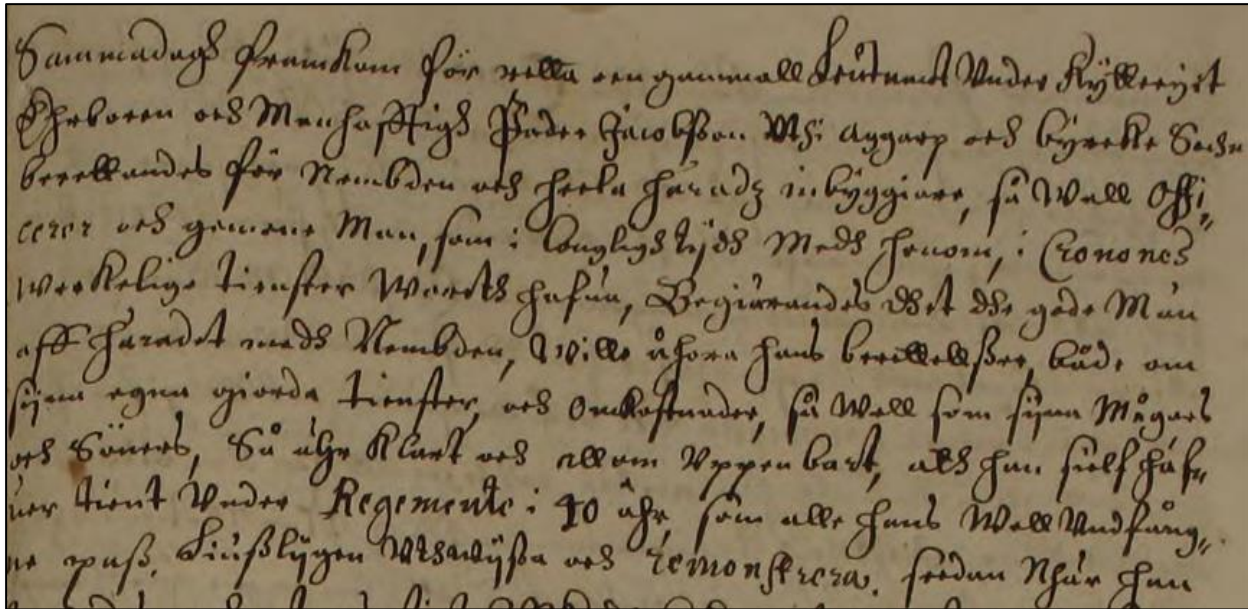 Sammadagh framkom för retta een gammall Leutnant Vnder Rytterijet
Ehrboren och Manhafftigh Peder Jacobßon Uthi Aggarp och byrekke Sochn
berettandes för Nembden och heela häradz inbyggiare, så Well Offi„
cerer och gemene Man, som i långligh tijdh Medh honom, i Cronones
Werkelige tienster Warith hafua, Begiärandes dhet dhe gode Män
aff häradet medh Nembden, Wille åhöra hans berettellßer, både om
sijna egna giorda tienster, och omkostnader, så Well som sijna Mågars
och Söners, Så ähr Klart och allom Vppenbart, att han sielf häf„
uer tient Vnder Regemente i 40 åhr, som alle hans Well Vndfång„
ne paß, Liußlygen Uthwijßa och remonstrera. sedan Nhär han